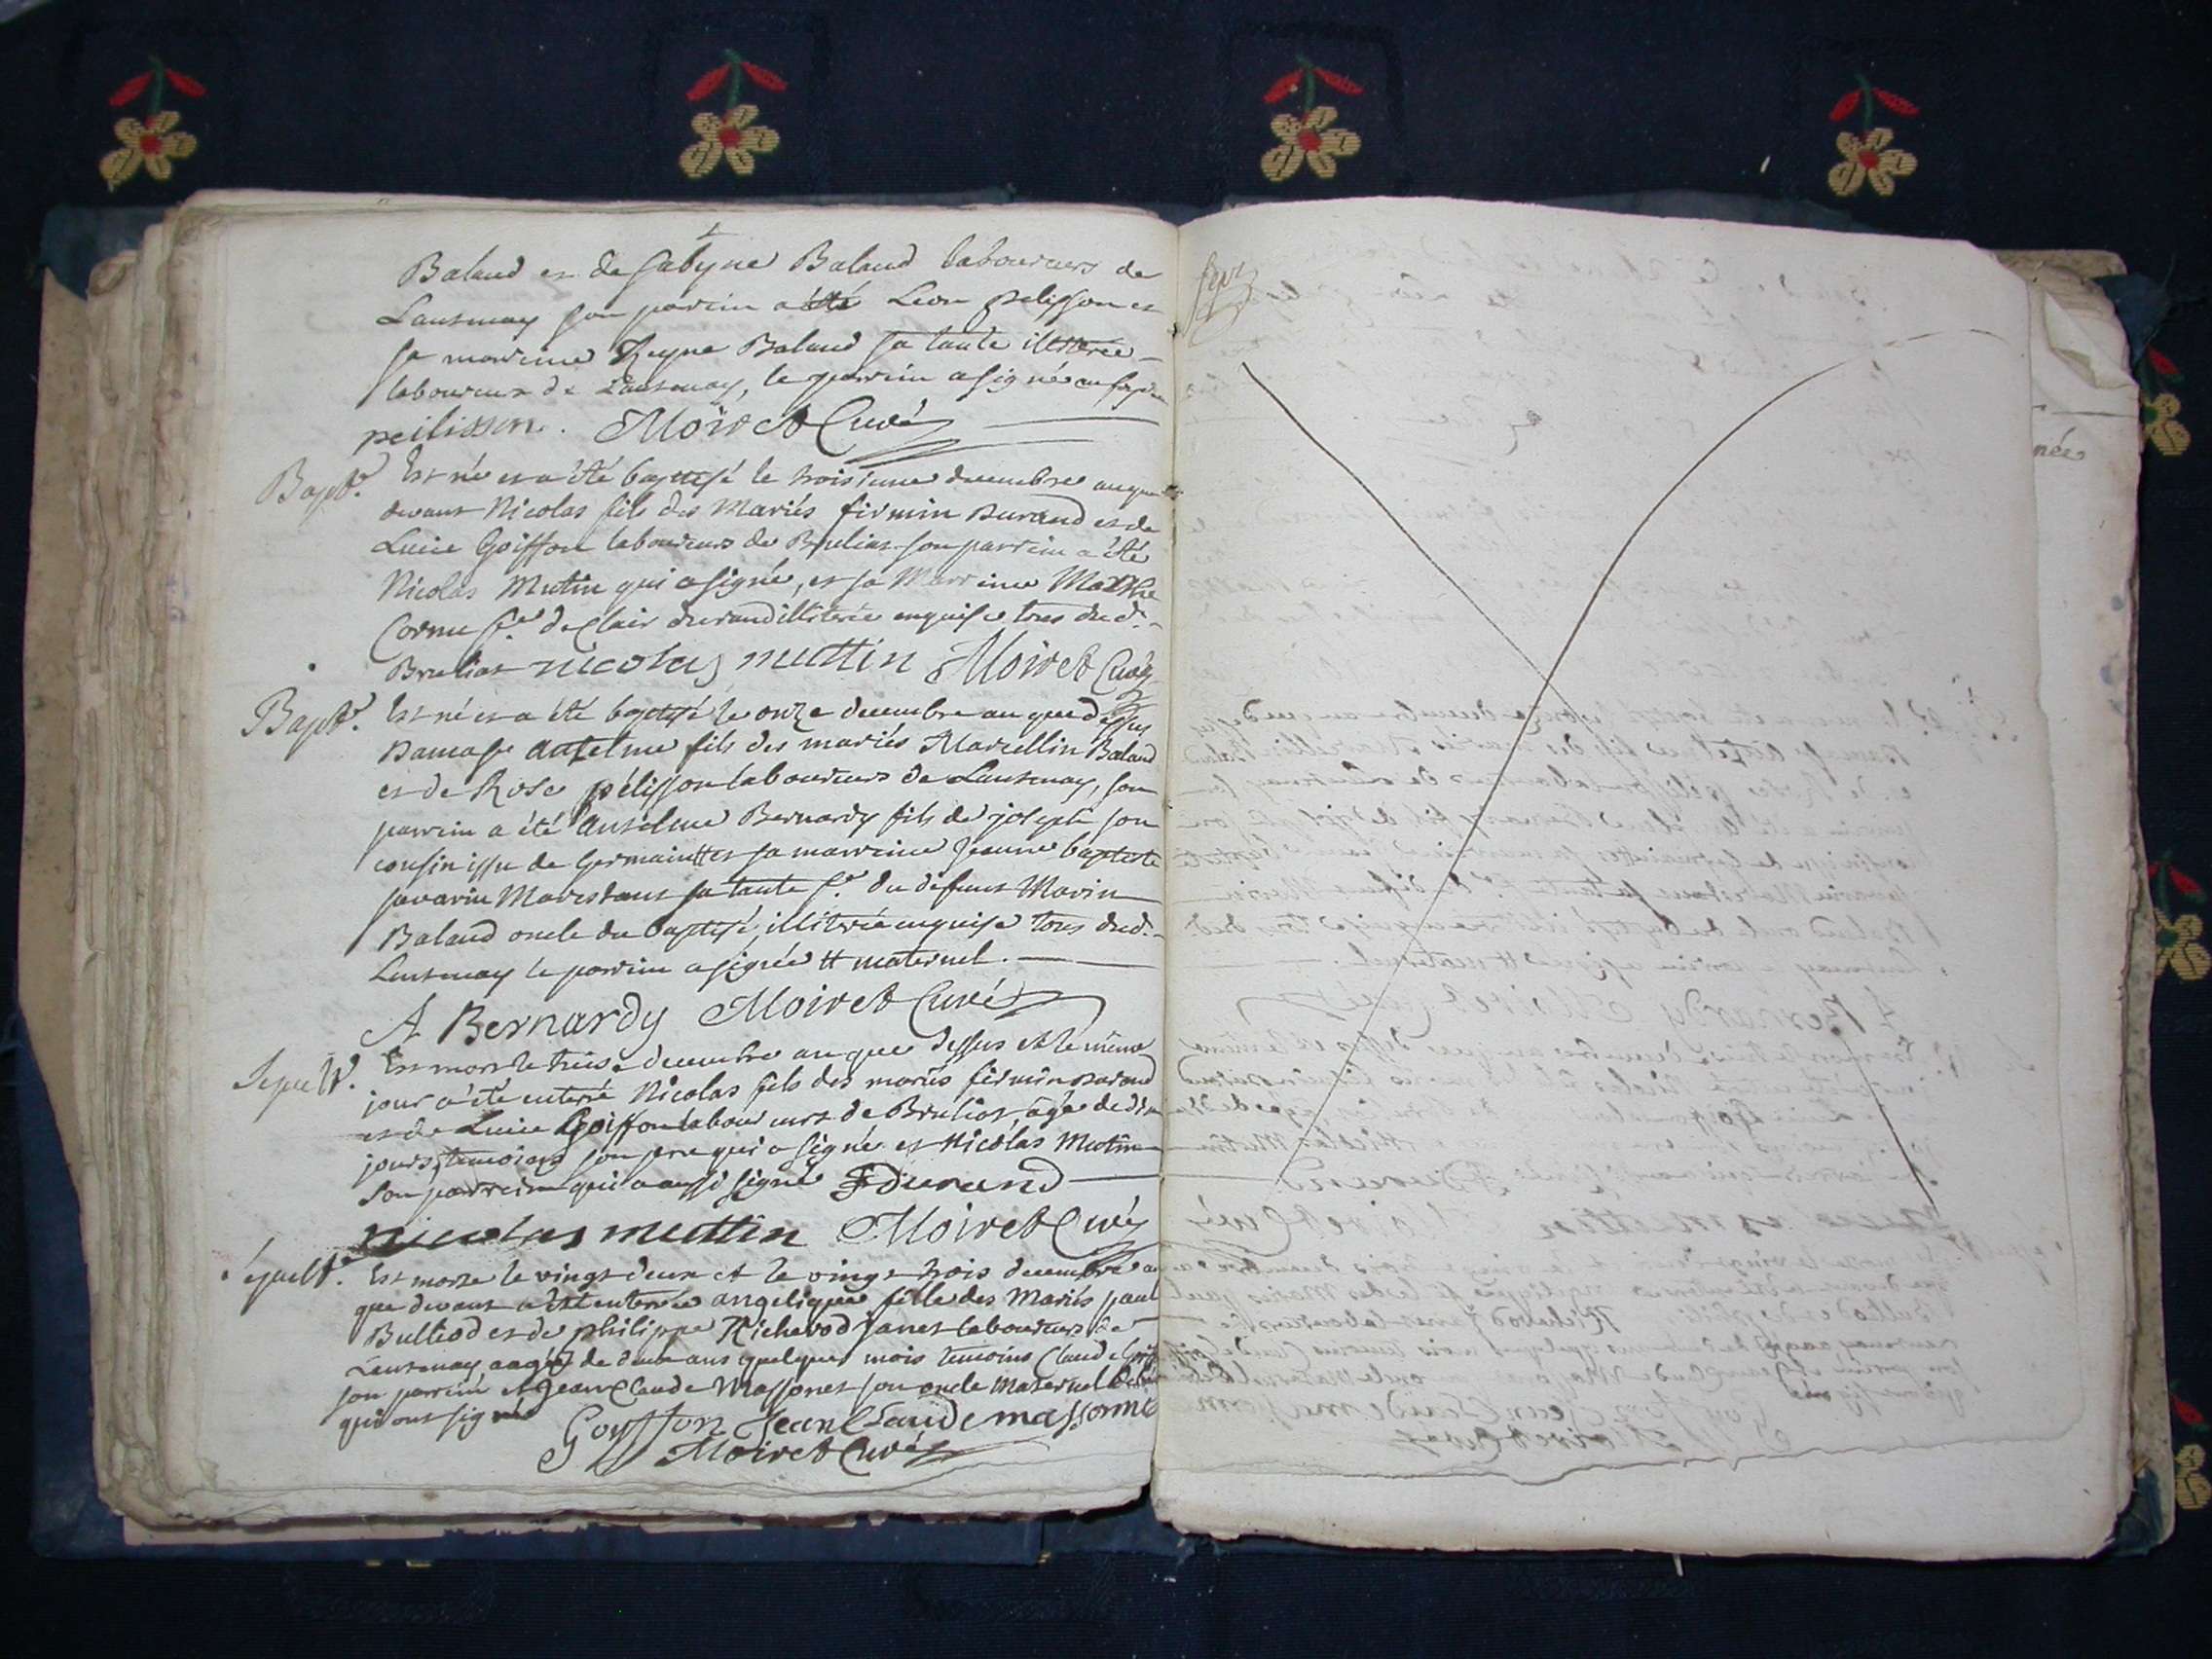 Balaud et de Sabyne Balaud laboureurs de
Lantenay son parrein a été Leon pelisson et
sa marreine Reyne Balaud sa tante illiterée
laboureurs de Lantenay, le parrein a signé
peilisson. Moiret Curé
Bapt.e Est né et a été baptisé le troisieme decembre an que
devant Nicolas fils des Mariés firmin Durand et de
Lucie Goiffon laboureurs de Brulias son parrein a été
Nicolas Mutin qui a signé, et sa Marreine Marthe
Cornu f.e de Clair durand illiterée enquise tous dud.
Brulias nicolas muttin Moiret Curé
Bapt.e Est né et a été baptisé le onze decembre an que dessus
Damase antelme fils des mariés Marcellin Balaud
et de Rose pélisson laboureurs de Lantenay, son
parrein a été Anselme Bernardy fils de joseph son
cousin issu de Germain # et sa marreine Jeanne baptiste
savarin Marestant sa tante f.e du défunt Marin
Balaud oncle du baptisé, illiterée enquise tous dud.
Lantenay le parrein a signé # maternel.
A Bernardy Moiret Curé
Sepult.e Est mort le treize decembre an que dessus et le même
jour a été enterré Nicolas fils des mariés firmin durand
et de Lucie Goiffon laboureurs de Brulias agé de dix
jours, temoins son pere qui a signé et Nicolas Mutin
son parrein qui a aussi signé F durand
nicolas muttin Moiret Curé
Sépult.e Est morte le vingt deux et le vingt trois decembre an
que devant a été enterrée angelique fille des Mariés paul
Bulliod et de philippe Richerod Janet laboureurs de
Lantenay aagée de deux ans quelques mois temoins Claude
son parrein et Jean Claude Massonet son oncle Maternel
qui ont signé Goyffon Jean Claude massonne
Moiret Curé
née